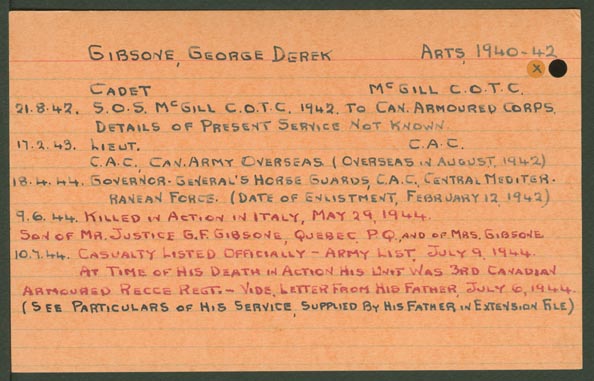 GIBSONE, GEORGE DEREK ARTS, 1940-42
X
CADET McGILL C.O.T.C.
21.8.42. S.O.S. McGILL C.O.T.C. 1942. TO CAN. ARMOURED CORPS.
DETAILS OF PRESENT SERVICE NOT KNOWN.
17.2.43. LIEUT. C.A.C.
C.A.C., CAN. ARMY OVERSEAS. (OVERSEAS IN AUGUST, 1942)
18.4.44. GOVERNOR-GENERAL'S HORSE GUARDS, C.A.C., CENTRAL MEDITER-
RANEAN FORCE. (DATE OF ENLISTMENT, FEBRUARY 12, 1942)
9.6.44. KILLED IN ACTION IN ITALY, MAY 29, 1944.
SON OF MR. JUSTICE G.F. GIBSONE, QUEBEC, P.Q., AND OF MRS. GIBSONE
10.7.44. CASUALTY LISTED OFFICIALLY - ARMY LIST, JULY 9, 1944.
AT TIME OF HIS DEATH IN ACTION HIS UNIT WAS 3RD CANADIAN
ARMOURED RECCE REGT. - VIDE, LETTER FROM HIS FATHER, JULY 6, 1944.
(SEE PARTICULARS OF HIS SERVICE, SUPPLIED BY HIS FATHER, IN EXTENSION FILE)